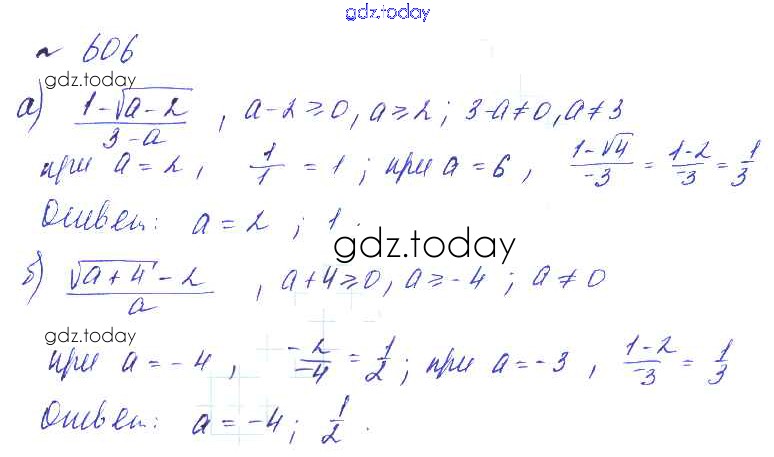 gdz.today
~ 606
gdz.today
а) (1-√(a-2))/(3-a) , a-2≥0, a≥2 ; 3-a≠0, a≠3
при a=2, 1/1 = 1 ; при a=6, (1-√4)/-3 = (1-2)/-3 = 1/3
Ответ: a=2 ; 1.
gdz.today
б) (√(a+4)-2)/a , a+4≥0, a≥-4 ; a≠0
gdz.today
при a=-4, -2/-4 = 1/2; при a=-3, (1-2)/-3 = 1/3
Ответ: a=-4; 1/2.